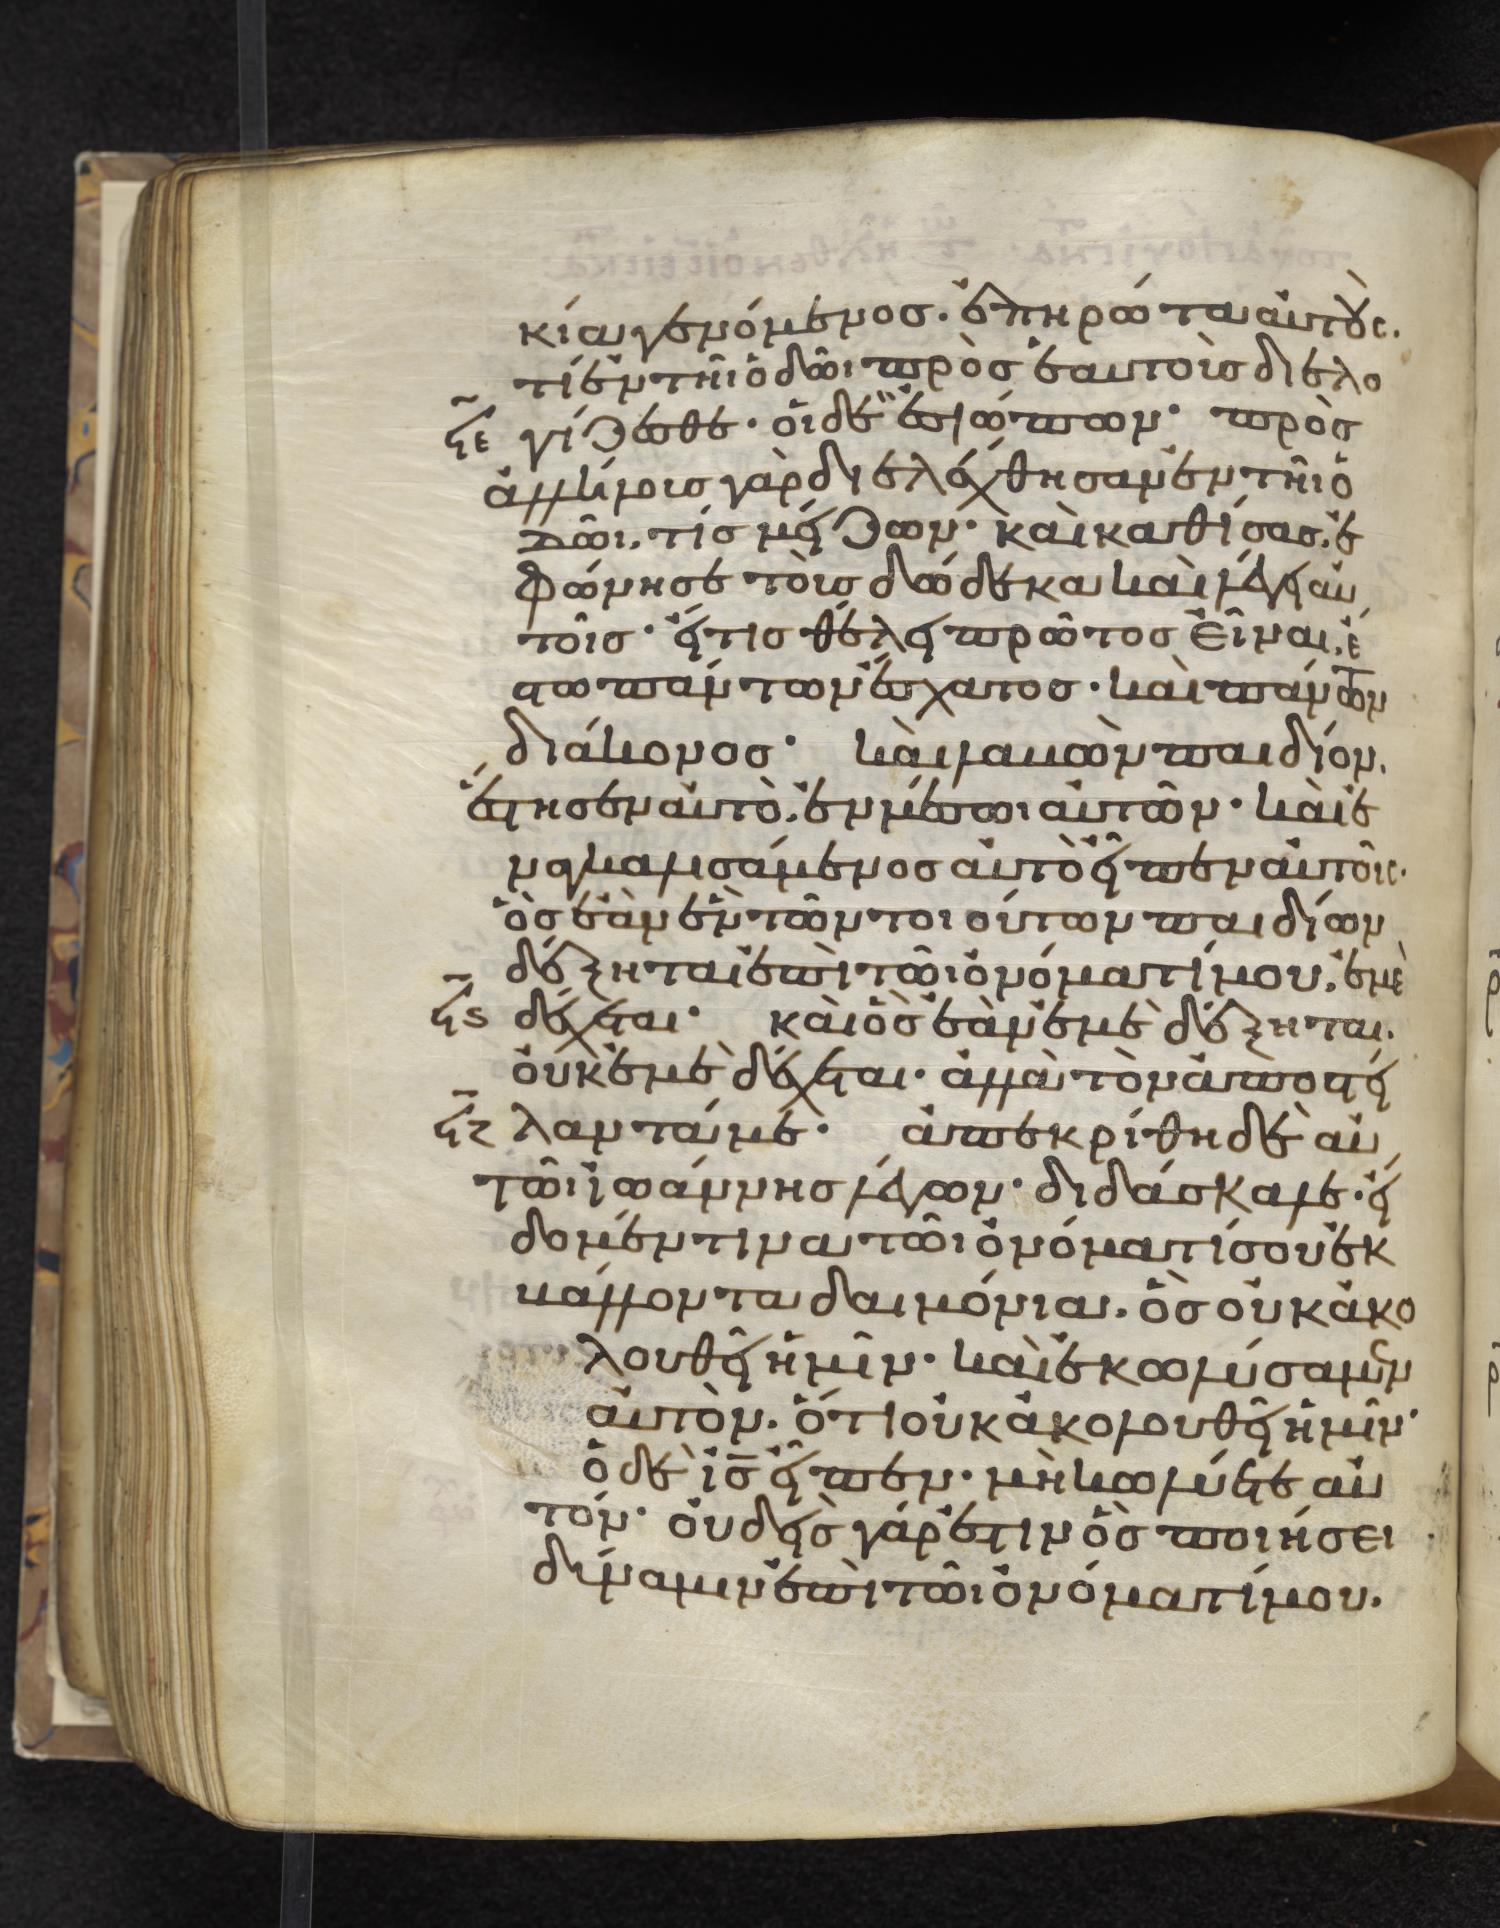 κία γενόμενος. ἐπηρώτα αὐτούς.
τί ἐν τῆι ὁδῶι πρὸς ἑαυτοὺς διελο
ϟε γίζεσθε· οἱ δὲ ἐσιώπων· πρὸς
ἀλλήλους γὰρ διελέχθησαν ἐν τῆι ὁ
δῶι. τίς μείζων· καὶ καθίσας. ἐ
φώνησε τοὺς δώδεκα καὶ λέγει αὐ
τοῖς· εἴ τις θέλει πρῶτος εἶναι. ἔ
στω πάντων ἔσχατος· καὶ πάντων
διάκονος· καὶ λαβὼν παιδίον.
ἔστησεν αὐτὸ. ἐν μέσωι αὐτῶν· καὶ ἐ
ναγκαλισάμενος αὐτὸ εἶπεν αὐτοῖς·
ὃς ἐὰν ἓν τῶν τοιούτων παιδίων
δέξηται ἐπὶ τῶι ὀνόματί μου. ἐμὲ
ϟς δέχεται· καὶ ὃς ἐὰν ἐμὲ δέξηται.
οὐκ ἐμὲ δέχεται· ἀλλὰ τὸν ἀποστεί
ϟζ λαντά με· ἀπεκρίθη δὲ αὐ
τῶι ἰωάννης λέγων· διδάσκαλε· εἴ
δομέν τινα τῶι ὀνόματί σου ἐκ
βάλλοντα δαιμόνια. ὃς οὐκ ἀκο
λουθεῖ ἡμῖν· καὶ ἐκωλύσαμεν
αὐτὸν. ὅτι οὐκ ἀκολουθεῖ ἡμῖν·
ὁ δὲ ἰς εἶπεν· μὴ κωλύετε αὐ
τόν· οὐδεὶς γάρ ἐστιν ὃς ποιήσει
δύναμιν ἐπὶ τῶι ὀνόματί μου.